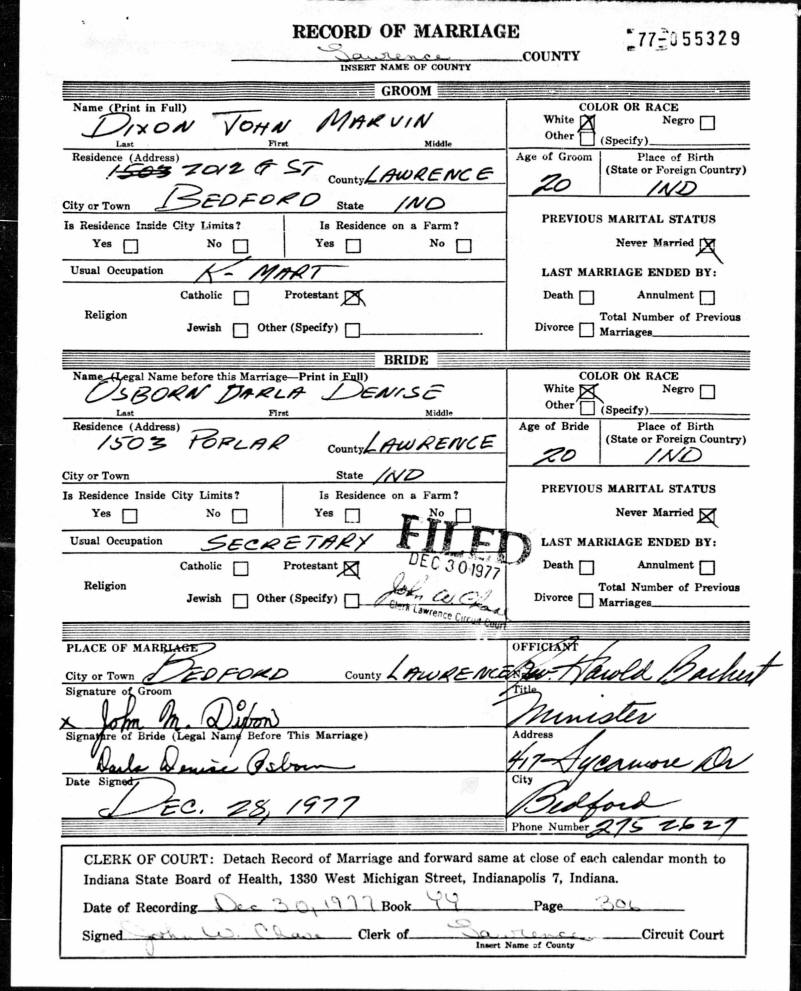 RECORD OF MARRIAGE
77-055329
Lawrence COUNTY
INSERT NAME OF COUNTY
GROOM
Name (Print in Full)
DIXON JOHN MARVIN
Last First Middle
COLOR OR RACE
White Negro
Other (Specify)
Residence (Address)
1503 2012 G ST County LAWRENCE
City or Town BEDFORD State IND
Age of Groom
20
Place of Birth
(State or Foreign Country)
IND
Is Residence Inside City Limits? Is Residence on a Farm?
Yes No Yes No
PREVIOUS MARITAL STATUS
Never Married
Usual Occupation K-MART
LAST MARRIAGE ENDED BY:
Religion
Catholic Protestant
Jewish Other (Specify)
Death Annulment
Divorce Total Number of Previous
Marriages
BRIDE
Name (Legal Name before this Marriage—Print in Full)
OSBORN DARLA DENISE
Last First Middle
COLOR OR RACE
White Negro
Other (Specify)
Residence (Address)
1503 POPLAR County LAWRENCE
City or Town State IND
Age of Bride
20
Place of Birth
(State or Foreign Country)
IND
Is Residence Inside City Limits? Is Residence on a Farm?
Yes No Yes No
PREVIOUS MARITAL STATUS
Never Married
Usual Occupation SECRETARY
FILED
DEC 30 1977
John W. Chase
Clerk Lawrence Circuit Court
LAST MARRIAGE ENDED BY:
Religion
Catholic Protestant
Jewish Other (Specify)
Death Annulment
Divorce Total Number of Previous
Marriages
PLACE OF MARRIAGE
City or Town BEDFORD County LAWRENCE
OFFICIANT
Rev. Harold Bachert
Signature of Groom
x John M. Dixon
Title
Minister
Signature of Bride (Legal Name Before This Marriage)
Darla Denise Osborn
Address
417-Sycamore Dr
Date Signed
DEC. 28, 1977
City
Bedford
Phone Number 275 2627
CLERK OF COURT: Detach Record of Marriage and forward same at close of each calendar month to
Indiana State Board of Health, 1330 West Michigan Street, Indianapolis 7, Indiana.
Date of Recording Dec 30, 1977 Book 44 Page 306
Signed John W. Chase Clerk of Lawrence Circuit Court
Insert Name of County